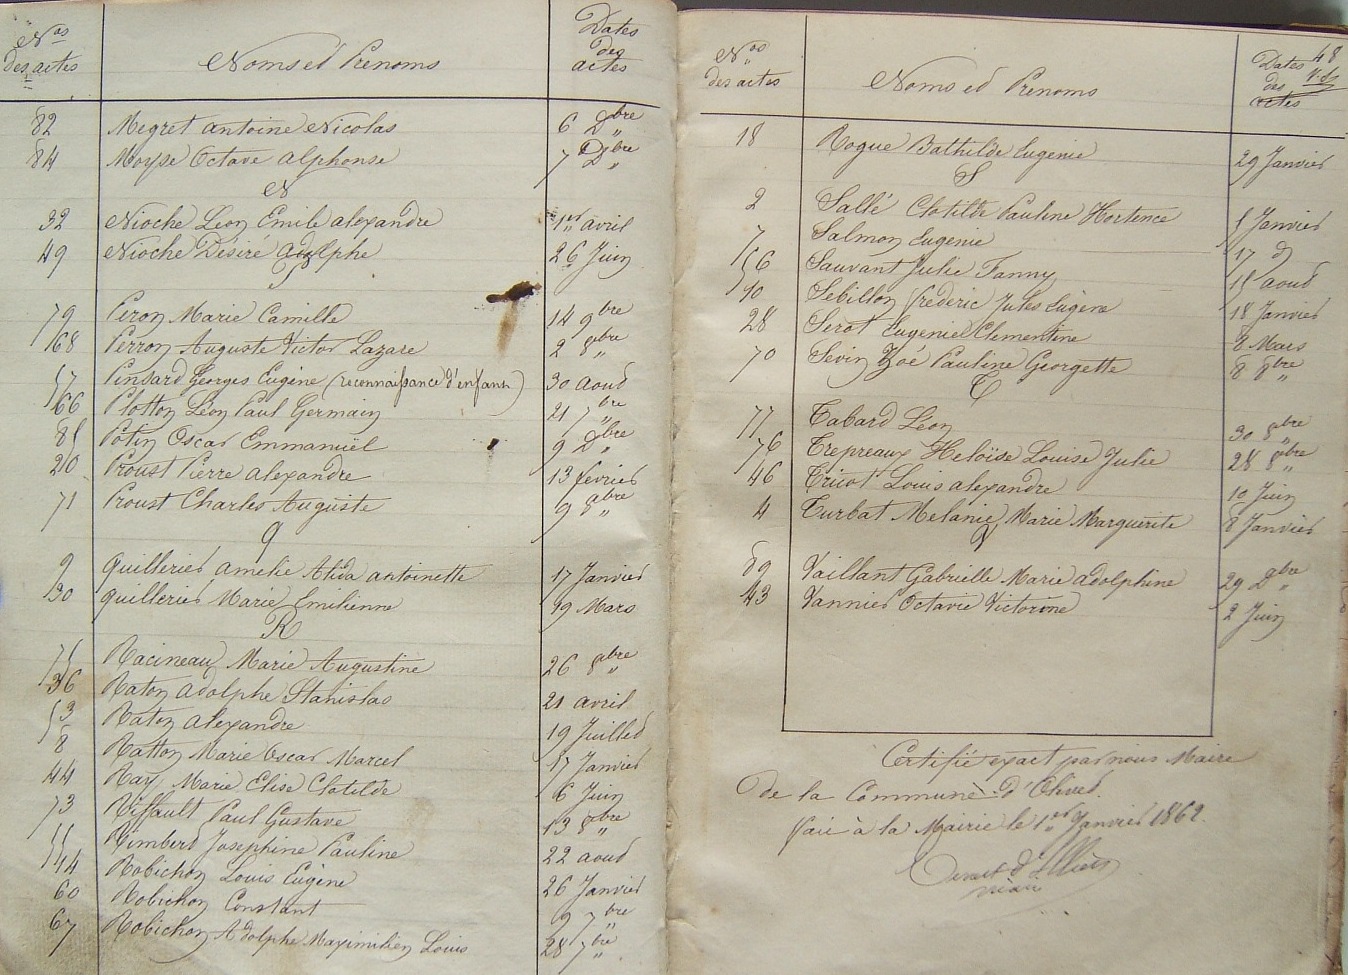 Nos des actes Noms et Prenoms Dates des actes
82 Megret Antoine Nicolas 6 Dbre
84 Moyse Octave Alphonse 7 Dbre „
N
32 Nioche Léon Emile Alexandre 1er avril
49 Nioche Désiré Adolphe 26 Juin
P
79 Peron Marie Camille 14 9bre
68 Perron Auguste Victor Lazare 2 8bre „
57 Pinsard Georges Eugène (reconnaissance d'enfant) 30 aout
66 Plotton Léon Paul Germain 21 7bre „
85 Potin Oscar Emmanuël 9 Dbre „
20 Proust Pierre Alexandre 13 février
71 Proust Charles Auguste 9 8bre „
Q
9 Quillerier Amelie Alida Antoinette 17 Janvier
30 Quillerier Marie Emilienne 29 Mars
R
75 Racineau Marie Augustine 26 8bre „
36 Raton Adolphe Stanislas 21 avril
53 Raton Alexandre 19 Juillet
8 Ratton Marie Oscar Marcel 17 Janvier
44 Ray Marie Elise Clotilde 6 Juin
73 Riffault Paul Gustave 13 8bre „
55 Rimbert Josephine Pauline 22 aout
14 Robichon Louis Eugène 26 Janvier
60 Robichon Constant 9 7bre
67 Robichon Adolphe Maximilien Louis 28 7bre „
48
Nos des actes Noms et Prenoms Dates des actes
18 Rogue Bathilde Eugenie 29 Janvier
S
2 Sallé Clotilde Pauline Hortence 5 Janvier
7 Salmon Eugenie 17 d
56 Sauvant Julie Fanny 15 aout
10 Sebillon frederic Jules Eugène 18 Janvier
28 Serot Eugenie Clementine 8 Mars
70 Sevin Zoé Pauline Georgette 8 8bre „
T
77 Tabard Léon 30 8bre
76 Trepreaux Heloïse Louise Julie 28 8bre „
46 Tricot Louis Alexandre 10 Juin
4 Turbat Melanie Marie Marguerite 8 Janvier
V
89 Vaillant Gabrielle Marie Adolphine 29 Dbre „
43 Vannier Octavie Victorine 2 Juin
Certifié exact par nous Maire
de la Commune d'Olivet.
fait à la Mairie le 1er Janvier 1862.